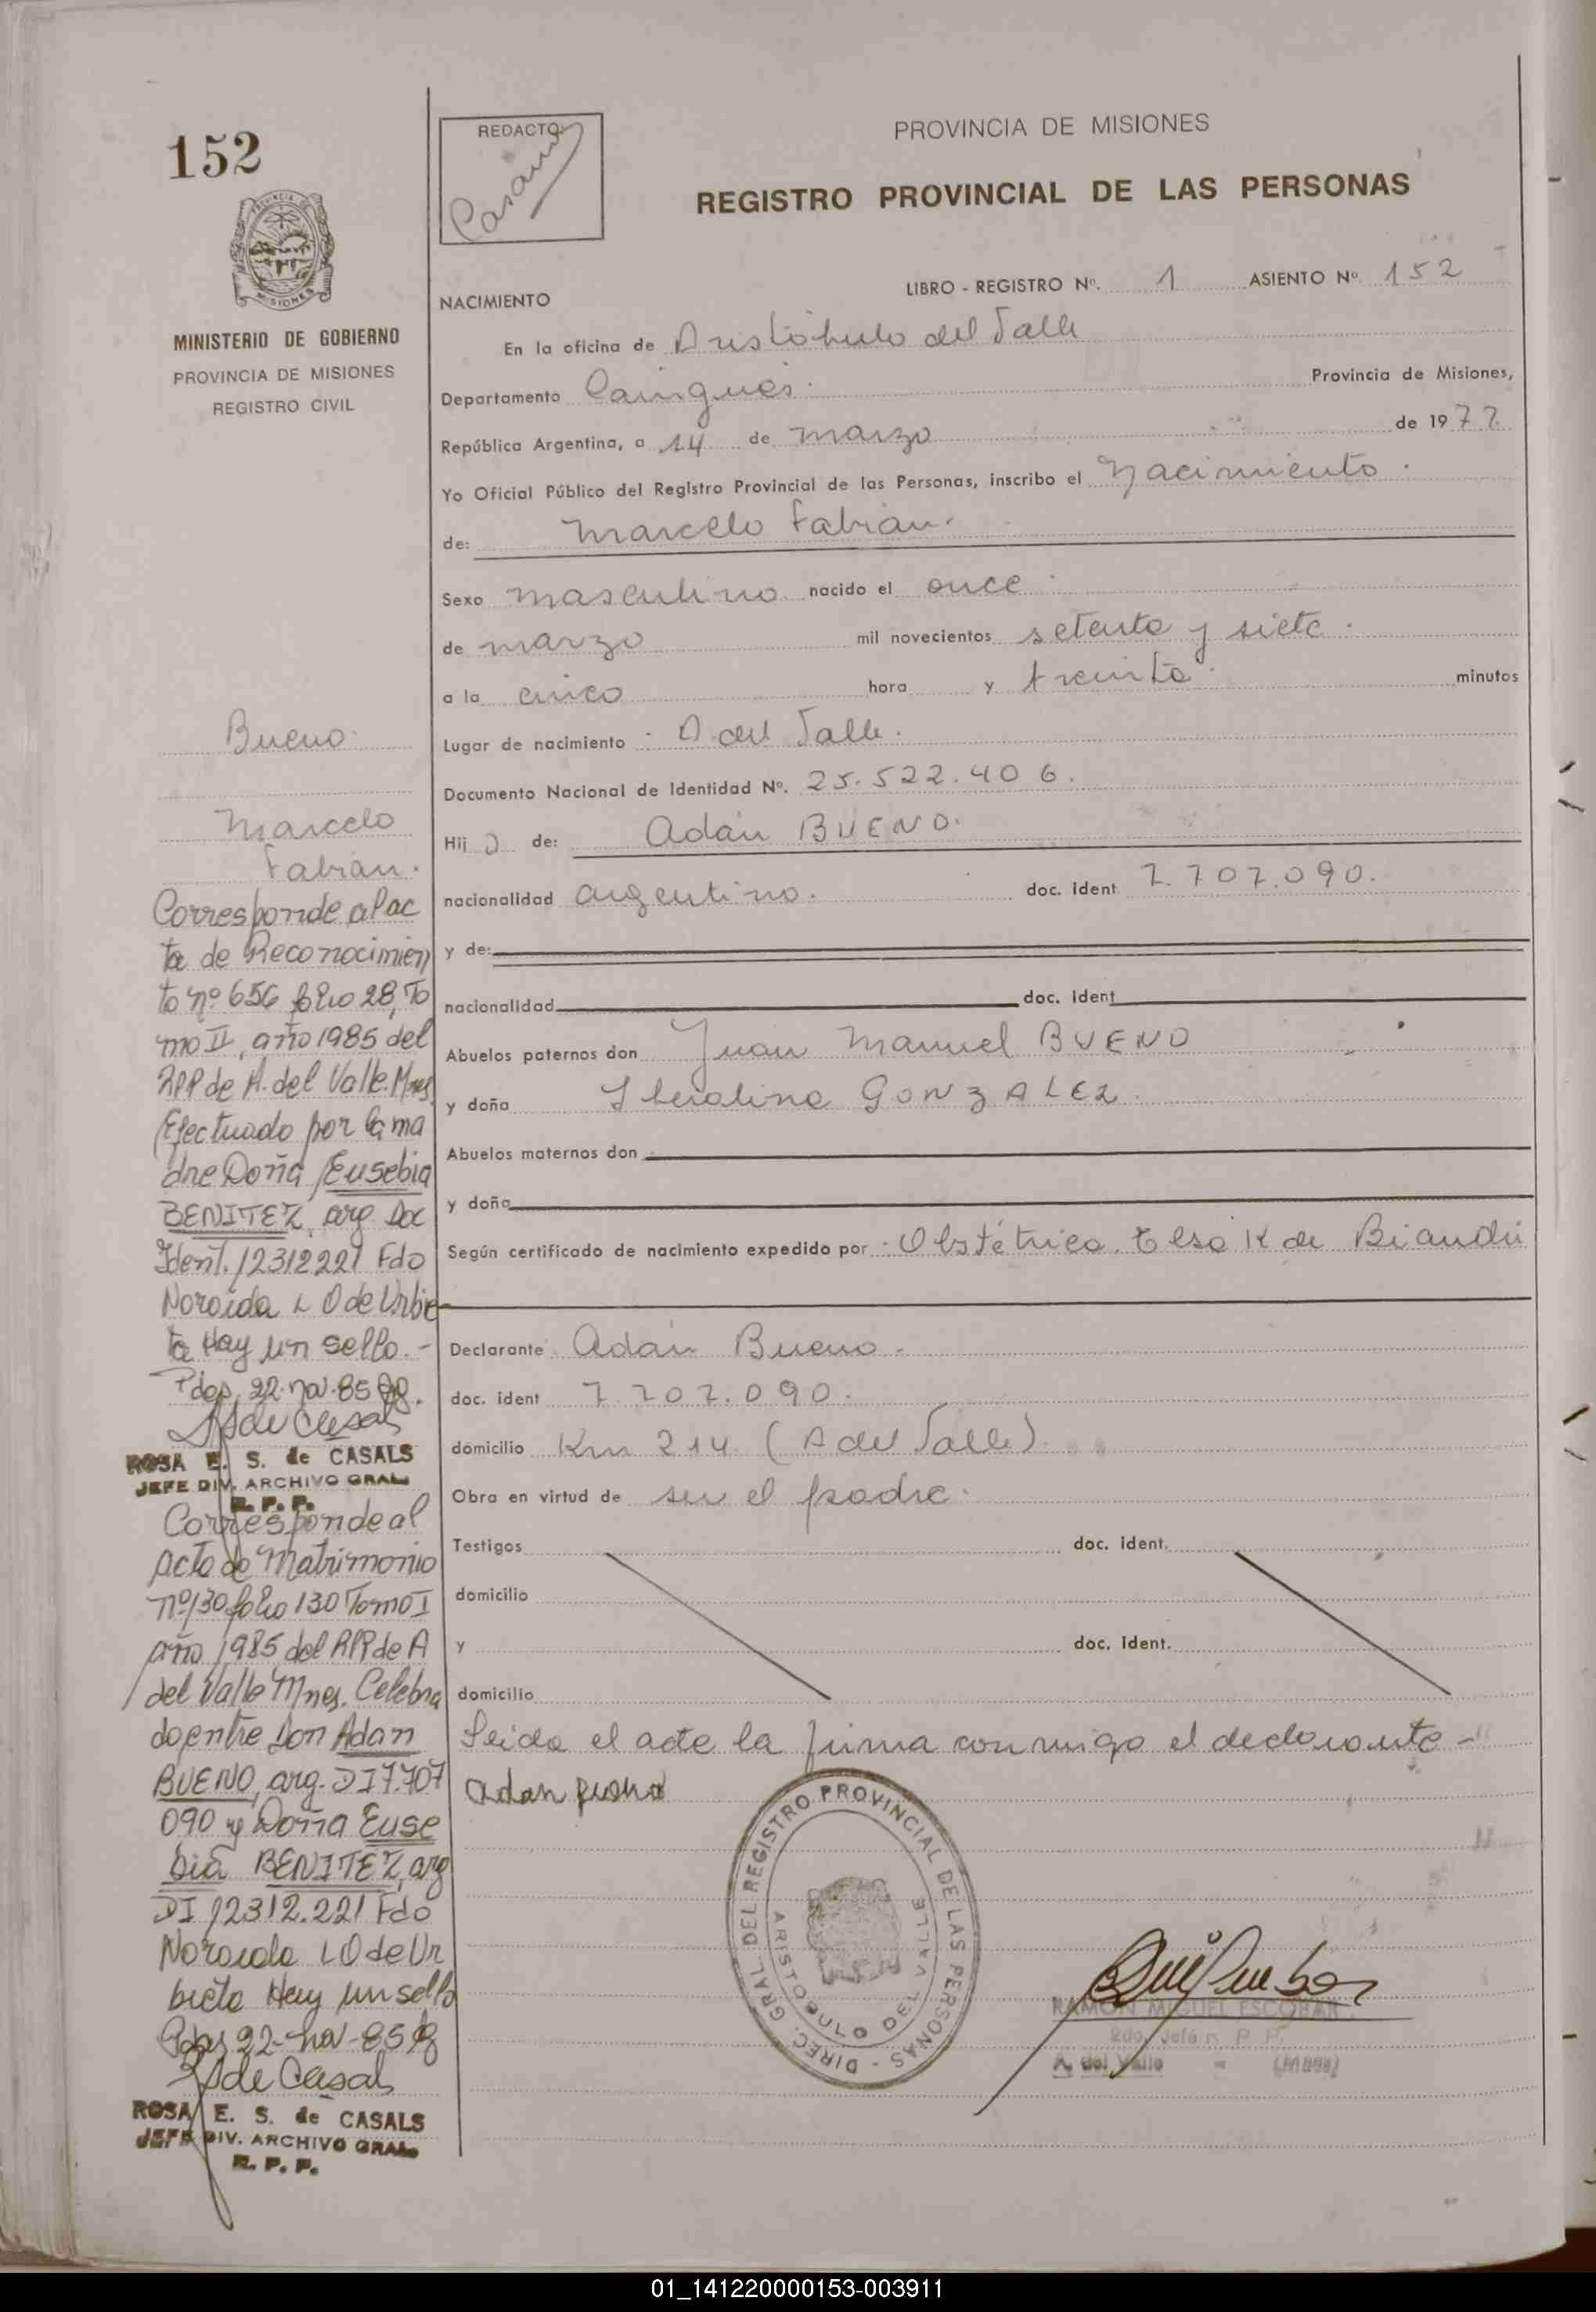 152
MINISTERIO DE GOBIERNO
PROVINCIA DE MISIONES
REGISTRO CIVIL
REDACTO:
PROVINCIA DE MISIONES
REGISTRO PROVINCIAL DE LAS PERSONAS
LIBRO - REGISTRO Nº. 1 ASIENTO Nº 152
NACIMIENTO
En la oficina de Aristóbulo del Valle
Departamento Cainguás. Provincia de Misiones,
República Argentina, a 14 de marzo de 1977.
Yo Oficial Público del Registro Provincial de las Personas, inscribo el Nacimiento.
de: Marcelo Fabián.
Sexo masculino nacido el once.
de marzo mil novecientos setenta y siete.
a la cinco hora y treinta. minutos
Lugar de nacimiento A. del Valle.
Documento Nacional de Identidad Nº. 25.522.406.
Hijo de: Adán BUENO.
nacionalidad argentino. doc. ident. 7.707.090.
y de:
nacionalidad doc. ident
Abuelos paternos don Juan Manuel BUENO
y doña GONZALEZ.
Abuelos maternos don
y doña
Según certificado de nacimiento expedido por Obstétrica. Elsa K de
Declarante Adán Bueno.
doc. ident 7.707.090.
domicilio Km 214. (A del Valle).
Obra en virtud de ser el padre.
Testigos doc. ident.
domicilio
y doc. ident.
domicilio
Leida el acta la firma conmigo el declarante -
Adan
DIREC. GRAL. DEL REGISTRO PROVINCIAL DE LAS PERSONAS -
ARISTOBULO DEL VALLE
RAMON MIGUEL ESCOBAR
2do. Jefe R. P. P.
A. del Valle - (Mnes)
Bueno.
Marcelo
Fabián.
Corresponde al ac
ta de Reconocimien
to nº 656 folio 28, To
mo II, año 1985 del
RPP de A. del Valle. Mnes.
Efectuado por la ma
dre Doña Eusebia
BENITEZ, arg. Doc
Ident. 12312221 Fdo
Noroida L O de Urbie
ta Hay un sello.-
Pdas, 22-nov-85
S de Casals
ROSA E. S. de CASALS
JEFE DIV. ARCHIVO GRAL.
R. P. P.
Corresponde al
acta de Matrimonio
nº 130 folio 130 Tomo I
año 1985 del RPP de A
del Valle Mnes. Celebra
do entre Don Adan
BUENO, arg. DI 7.707
090 y Doña Euse
bia BENITEZ, arg
DI 12312.221 Fdo
Noroida L O de Ur
bieta Hay un sello
Pdas 22-nov-85
S de Casals
ROSA E. S. de CASALS
JEFE DIV. ARCHIVO GRAL.
R. P. P.
01_141220000153-003911